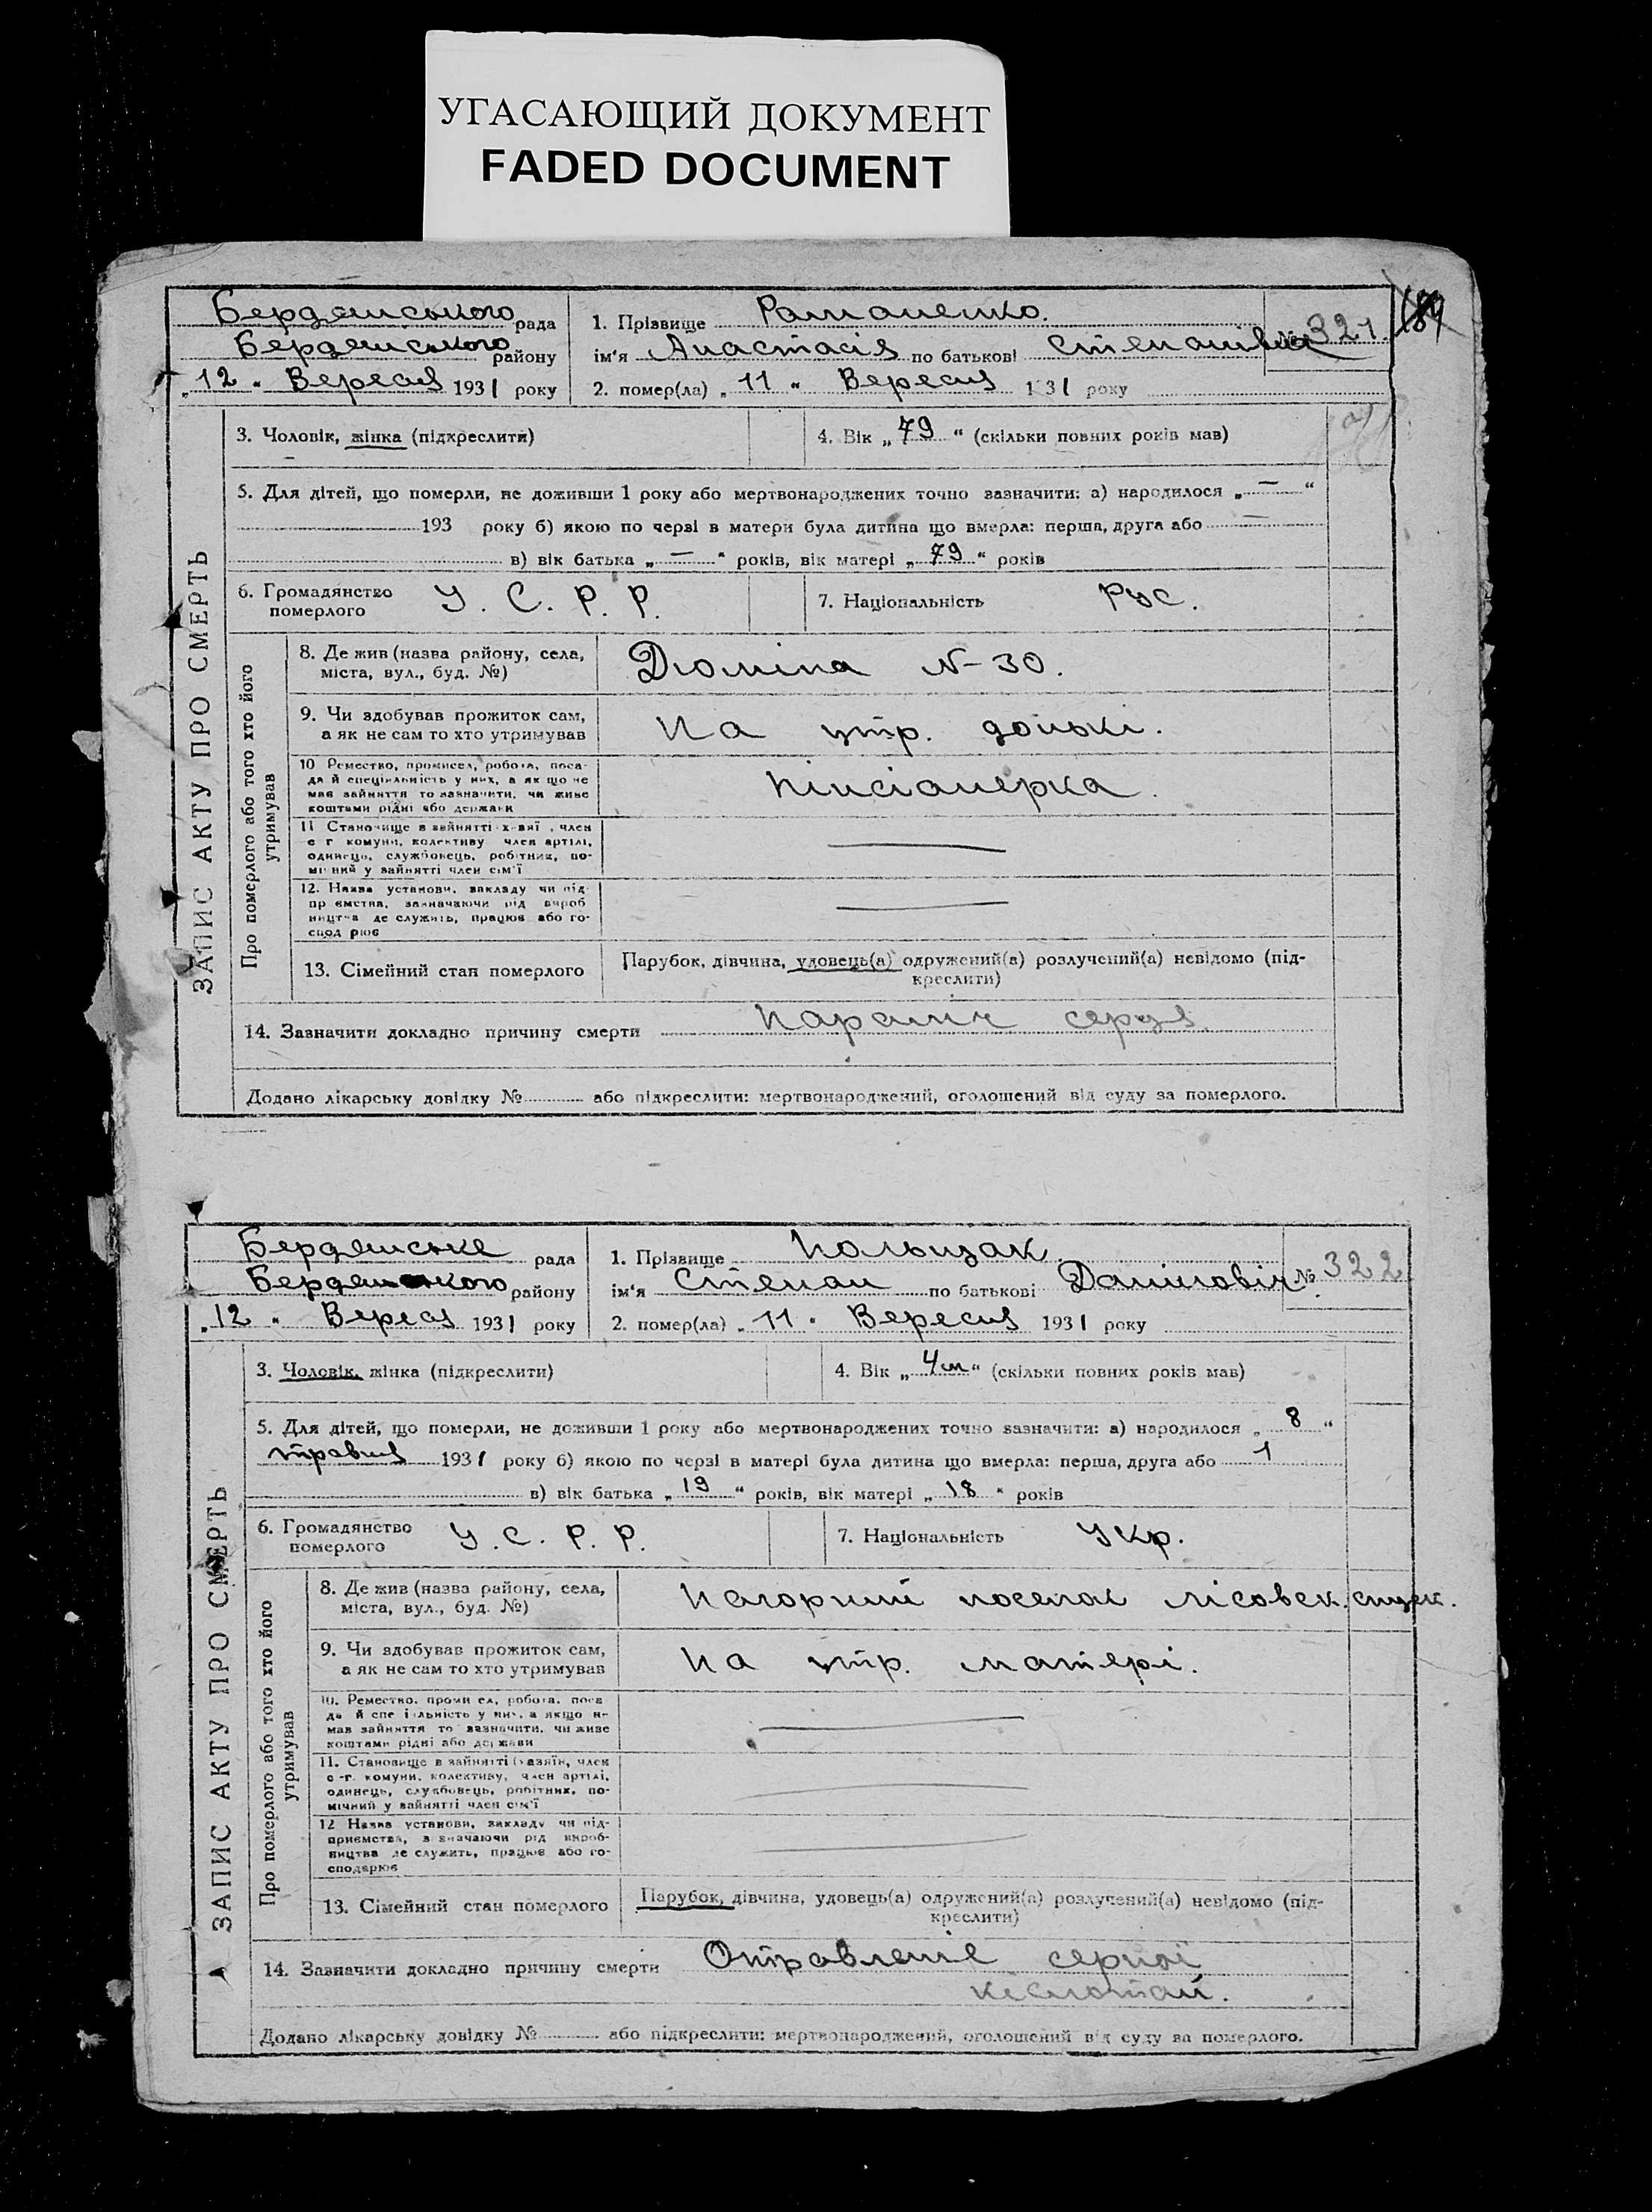 УГАСАЮЩИЙ ДОКУМЕНТ
FADED DOCUMENT
Бердянського рада
Бердянського району
„ 12 “ Вересня 1931 року
1. Прізвище Раманенко.
ім'я Анастасія по батькові Степанівна
№ 321.
2. помер(ла) „ 11 “ Вересня 1931 року
ЗАПИС АКТУ ПРО СМЕРТЬ
3. Чоловік, жінка (підкреслити)
4. Вік „ 79 “ (скільки повних років мав)
5. Для дітей, що померли, не доживши 1 року або мертвонароджених точно зазначити: а) народилося „ — “
193 року б) якою по черзі в матери була дитина що вмерла: перша, друга або —
в) вік батька „ — “ років, вік матері „ 79 “ років
6. Громадянство померлого У. С. Р. Р.
7. Національність рус.
Про померлого або того хто його утримував
8. Де жив (назва району, села,
міста, вул., буд. №)
Дюміна N-30.
9. Чи здобував прожиток сам,
а як не сам то хто утримував
На утр. доньки.
10 Ремество, промисел, робота, поса-
да й спеціяльність у них, а як що не
мав зайняття то зазначити, чи живе
коштами рідні або держави
Пінсіанерка.
11 Становище в зайнятті х-вяї , член
с г комуни, колективу член артілі,
одинець, службовець, робітник, по-
мічний у зайнятті член сім'ї
12. Назва установи, закладу чи під-
приємства, зазначаючи рід вироб
ництва де служить, працює або го-
спод рює
13. Сімейний стан померлого
Парубок, дівчина, удовець(а) одружений(а) розлучений(а) невідомо (під-
креслити)
14. Зазначити докладно причину смерти Параліч серця
Додано лікарську довідку № або підкреслити: мертвонароджений, оголошений від суду за померлого.
Бердянське рада
Бердянського району
„ 12 “ Верес 1931 року
1. Прізвище
ім'я Степан по батькові Данілович
№ 322
2. помер(ла) „ 11 “ Вересня 1931 року
ЗАПИС АКТУ ПРО СМЕРТЬ
3. Чоловік, жінка (підкреслити)
4. Вік „ 4 м “ (скільки повних років мав)
5. Для дітей, що померли, не доживши 1 року або мертвонароджених точно зазначити: а) народилося „ 8 “
травня 1931 року б) якою по черзі в матері була дитина що вмерла: перша, друга або 1
в) вік батька „ 19 “ років, вік матері „ 18 “ років
6. Громадянство померлого У. С. Р. Р.
7. Національність Укр.
Про померлого або того хто його утримував
8. Де жив (назва району, села,
міста, вул., буд. №)
Нагорний поселок
9. Чи здобував прожиток сам,
а як не сам то хто утримував
На утр. матері.
10. Ремество, проми ел, робота, поса
да й спе іяльність у них, а якщо н-
мав зайняття то зазначити, чи живе
коштами рідні або держави
11. Становище в зайнятті (хазяїн, член
с-г. комуни, колективу, член артілі,
одинець, службовець, робітник, по-
мічний у зайнятті член сім'ї
12 Назва установи, закладу чи під-
приємства, зазначаючи рід вироб-
ництва де служить, працює або го-
сподарює
13. Сімейний стан померлого
Парубок, дівчина, удовець(а) одружений(а) розлучений(а) невідомо (під-
креслити)
14. Зазначити докладно причину смерти Отравленіе серної
кіслотай.
Додано лікарську довідку № або підкреслити: мертвонароджений, оголошений від суду за померлого.